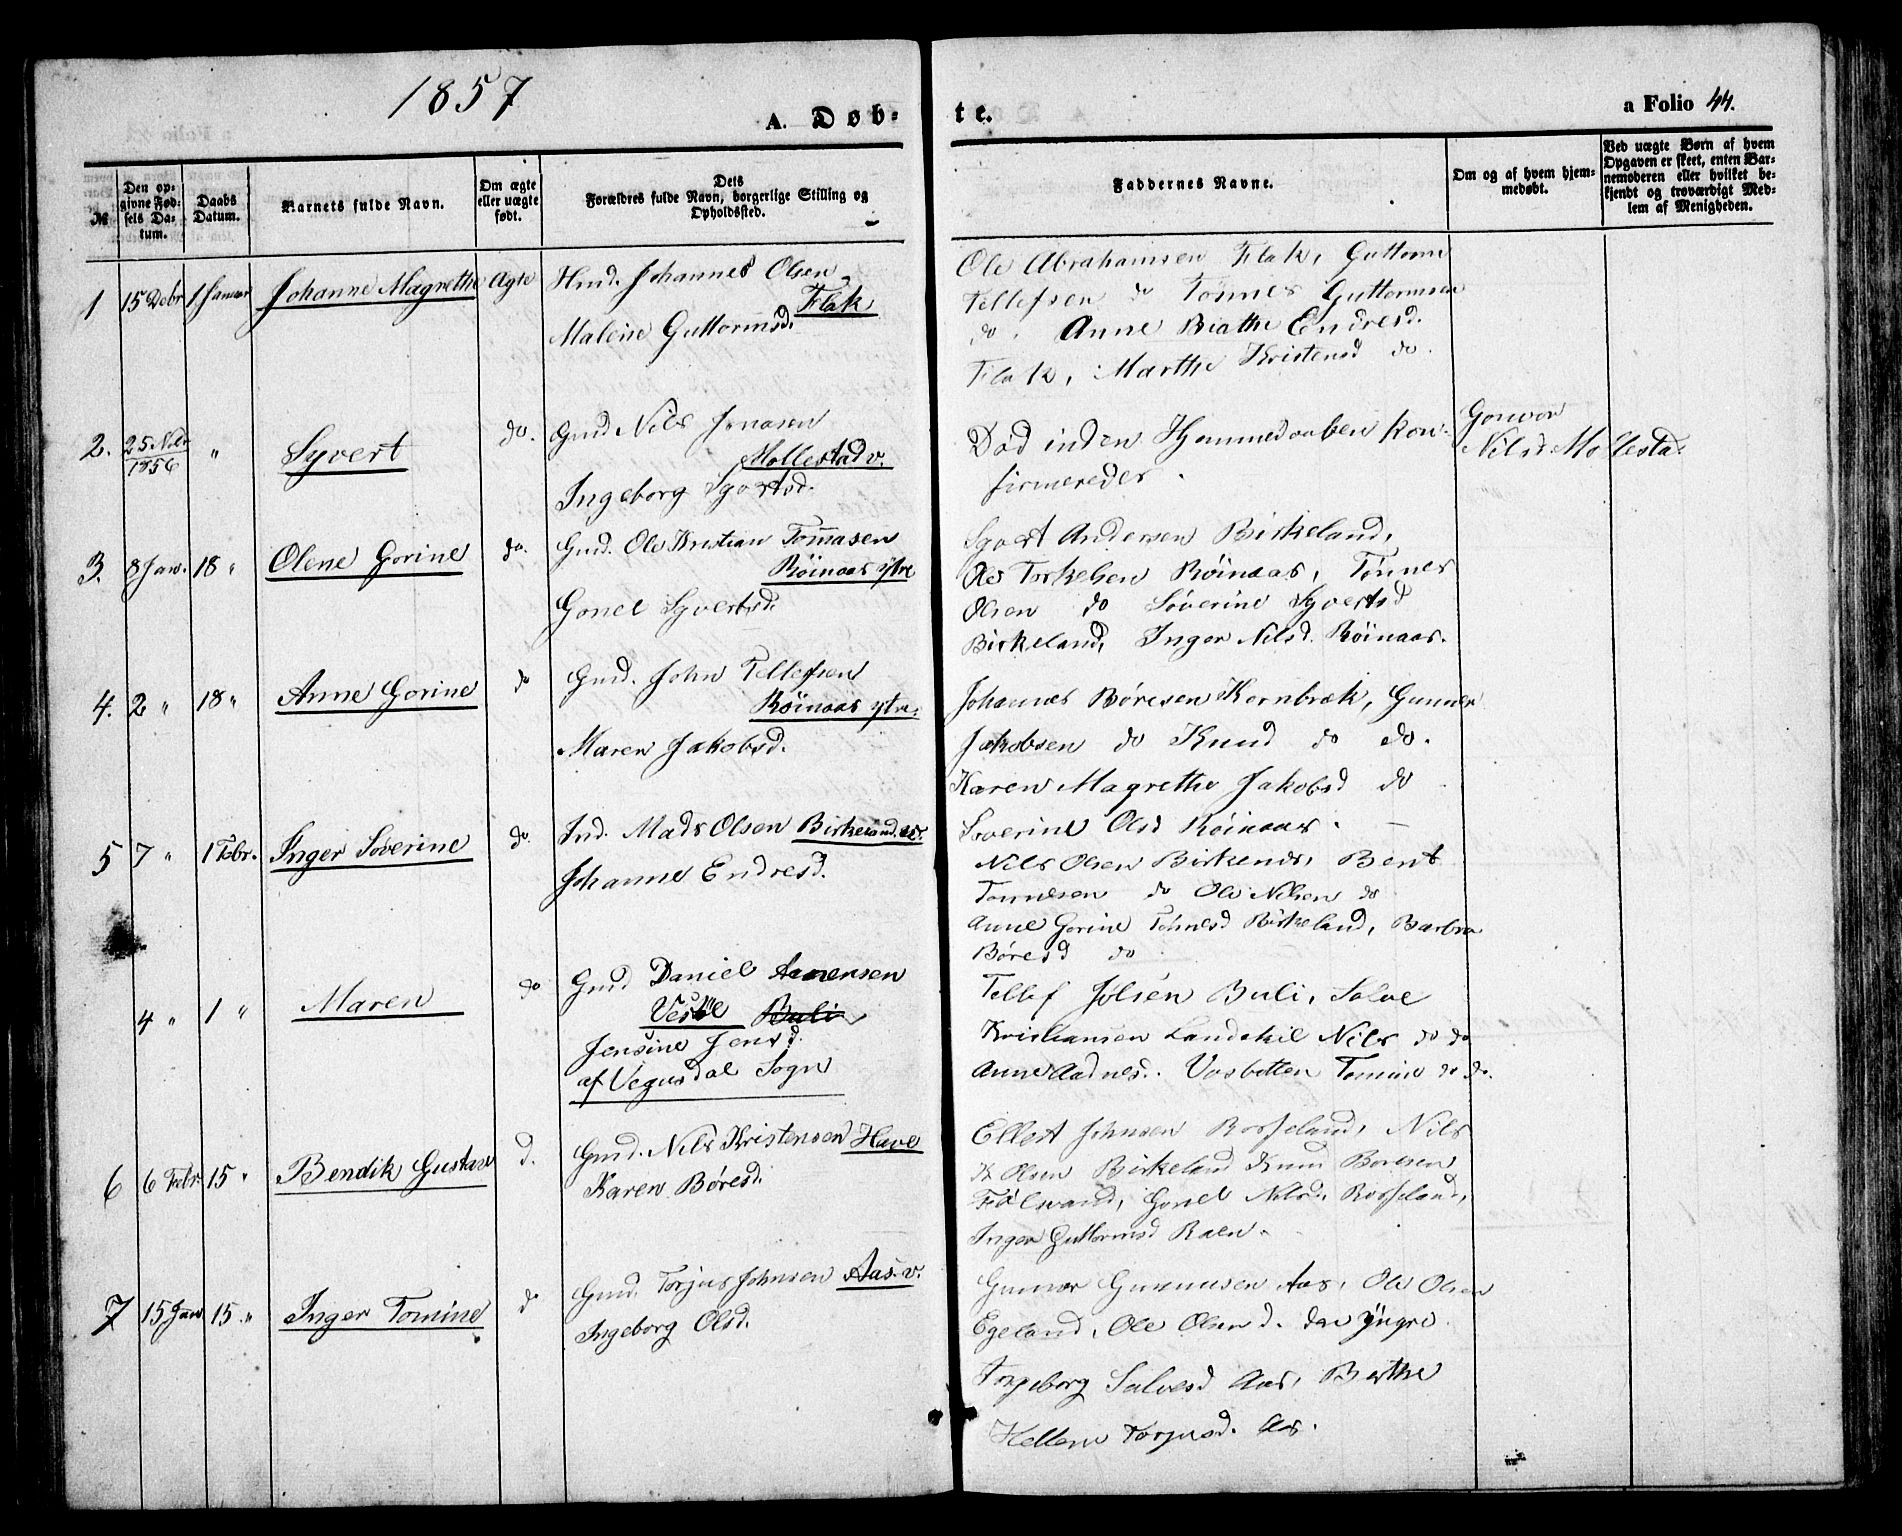 1857
A. Døb-
te.
a Folio 44.
№
Den op-
givne Fød-
sels Da-
tum.
Daabs
Datum.
Barnets fulde Navn.
Om ægte
eller uægte
født.
Dets
Forældres fulde Navn, borgerlige Stilling og
Opholdssted.
Faddernes Navne.
Om og af hvem hjem-
medøbt.
Ved uægte Børn af hvem
Opgaven er skeet, enten Bar-
nemoderen eller hvilket be-
kjendt og troværdigt Med-
lem af Menigheden.
1 15 Debr 1 Januar Johanne Magrethe Ægte Hmd. Johannes Olsen
Flak
Malene Guttormsd.
Ole Abrahamsen Flak, Guttorm
Tellefsen do Tønnes Guttormsen
do. Anne Biathe Endresd.
Flak, Marthe Kristensd do.
2. 25 Nbr
1856 " Syvert do. Gmd Nils Jonasen
Mollestad v.
Ingeborg Sgvrtsd.
Død inden Hjemmedaaben kon-
firmeredes.
Gonvor
Nilsd Mollestad
3. 8 Jan. 18 " Olene Gorine do. Gmd. Ole Kristian Tommasen
Røinaas ytre
Gonel Syvertsd.
Syvert Andersen Birkeland,
Ole Torkelsen Røinaas, Tønnes
Olsen do Søverine Syvertsd
Birkeland, Inger Nilsd. Røinaas.
4. 2 " 18 " Anne Gorine do Gmd. John Tellefsen
Røinaas ytre
Maren Jakobsd.
Johannes Børesen Kornbræk, Gunner
Jakobsen do Knud do do.
Karen Magrethe Jakobsd do
Soverine Olsd Røinaas.
5 7 " 1 Febr. Inger Soverine do. Ind. Mads Olsen Birkeland
Johanne Endresd.
Nils Olsen Birkelnd, Bent
Tonnesen do Ole Nilsen do
Anne Gorine Tønnesd Birkeland, Barbro
Børesd do
4 " 1 " Maren do Gmd Daniel Aanensen
Buli
Jensine Jensd.
af Vegusdal Sogn
Tellef Jolsen Buli, Salve
Kristiansen Landskil Nils do do
Anne Aadnesd. Vasbotten Tomine do do.
6 6 Febr. 15 " Bendik Gustav d. Gmd. Nils Kristensen Have
Karen Børesd.
Ellert Johnsen Rosseland, Nils
K Olsen Birkeland Knud Boresen
Følsvand, Gonel Nilsd. Rosseland,
Inger Guttormsd Raen.
7 15 Janr 15 " Inger Tomine do Gmd. Torjus Johnsen Aas. v.
Ingeborg Olsd.
Gunvor Gunnusen Aas, Ole Olsen
Egeland, Ole Olsen d. den yngre
Ingeborg Salvesd Aas, Berthe
Hellene Torjusd. Aas.